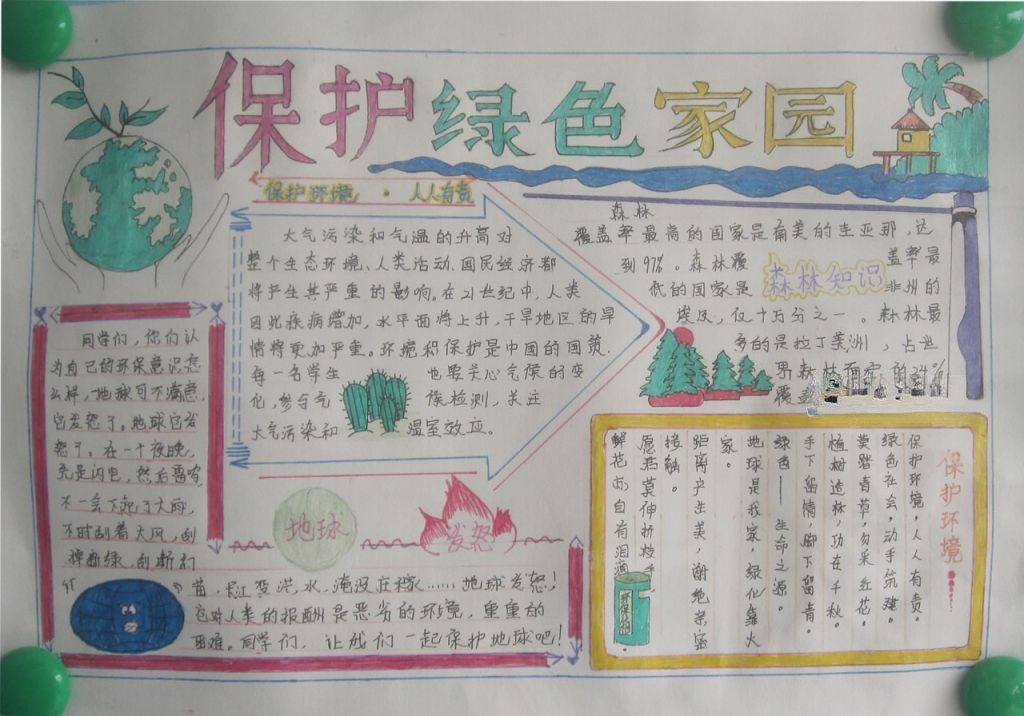 保护绿色家园
保护环境·人人有责
大气污染和气温的升高对
整个生态环境、人类活动、国民经济都
将产生其严重的影响。在21世纪中,人类
因此疾病增加,水平面将上升,干旱地区的旱
情将更加严重。环境积保护是中国的国策,
每一名学生也要关心气候的变
化,参与气候检测,关注
大气污染和温室效应。
森林
覆盖率最高的国家是南美的圭亚那,达
到97%。森林覆盖率最
低的国家是非洲的
森林知识
埃及,仅十万分之一。森林最
多的是拉丁美洲,占世
界森林面积的24%
覆盖
同学们,你们认
为自己的环保意识怎
么样,地球可不满意,
它发怒了。地球它发
怒了。在一个夜晚,
先是闪电,然后雷鸣,
不一会下起了大雨,
不时刮着大风,刮
掉断绿,刮断们
地球
发怒
昔,长江变洪水,淹没庄稼……地球发怒!
它对人类的报酬是恶劣的环境,重重的
困难。同学们,让我们一起保护地球吧!
保护环境……
保护环境,人人有责。
绿色社会,动手筑建。
莫踏青草,勿采红花。
植树造林,功在千秋。
手下留情,脚下留青。
绿色——生命之源。
地球是我家,绿化靠大
家。
距离产生美,谢绝亲密
接触。
愿君莫伸折枝手
鲜花亦自有泪滴。
环保垃圾